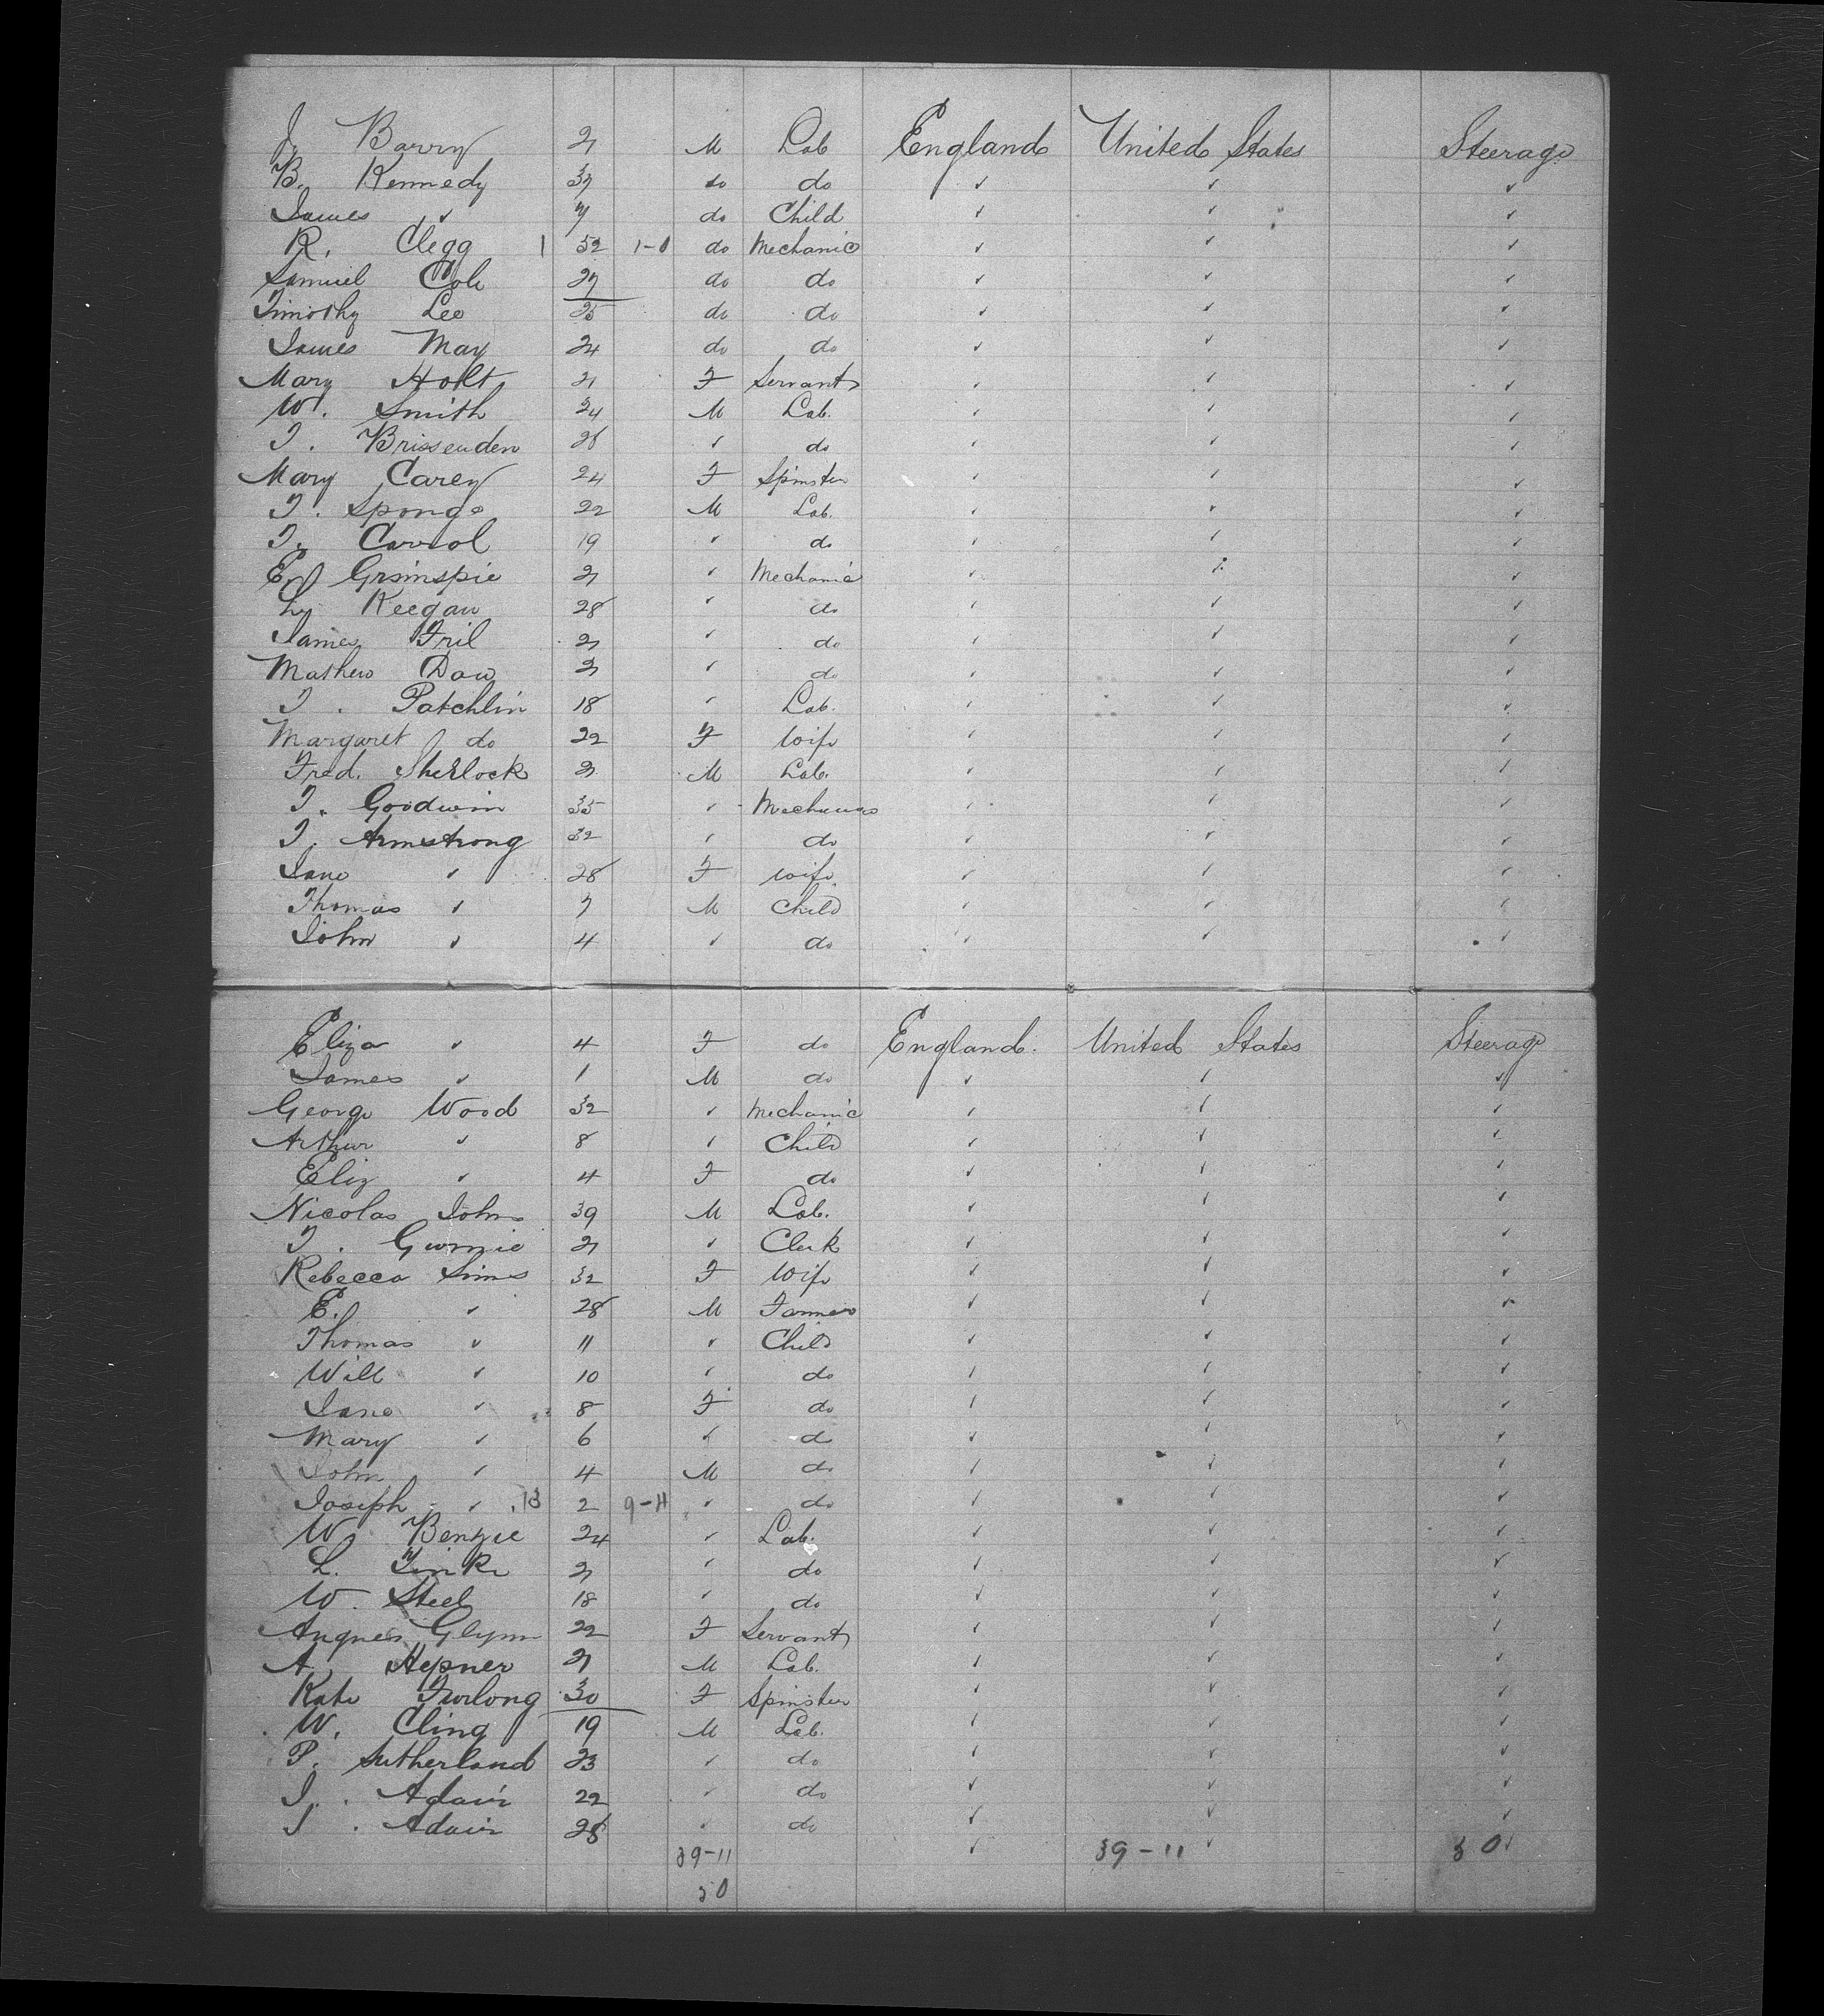 J. Barry 21 M Lab England United States Steerage
B. Kennedy 37 do do ✓ ✓ ✓
James ✓ 7 do Child ✓ ✓ ✓
R. Clegg 1 52 1-0 do Mechanic ✓ ✓ ✓
Samuel Cole 27 do do ✓ ✓ ✓
Timothy Lee 25 do do ✓ ✓ ✓
James May 24 do do ✓ ✓ ✓
Mary Holt 21 F Servant ✓ ✓ ✓
W. Smith 24 M Lab. ✓ ✓ ✓
T. Brissenden 28 ✓ do ✓ ✓ ✓
Mary Carey 24 F Spinster ✓ ✓ ✓
T. Sponge 22 M Lab. ✓ ✓ ✓
T. Carrol 19 ✓ do ✓ ✓ ✓
E. Grsinspie 21 ✓ Mechanic ✓ ✓ ✓
Keegan 28 ✓ do ✓ ✓ ✓
James Fril 21 ✓ do ✓ ✓ ✓
Mathew Daw 21 ✓ do ✓ ✓ ✓
T. Patchlin 18 ✓ Lab. ✓ ✓ ✓
Margaret do 22 F Wife ✓ ✓ ✓
Fred. Sherlock 21 M Lab. ✓ ✓ ✓
T. Goodwin 35 ✓ Mechanic ✓ ✓ ✓
T. Armstrong 32 ✓ do ✓ ✓ ✓
Jane ✓ 28 F Wife ✓ ✓ ✓
Thomas ✓ 7 M Child ✓ ✓ ✓
John ✓ 4 ✓ do ✓ ✓ ✓
Eliza ✓ 4 F do England. United States Steerage
James ✓ 1 M do ✓ ✓ ✓
George Wood 32 ✓ Mechanic ✓ ✓ ✓
Arthur ✓ 8 ✓ Child ✓ ✓ ✓
Eliz ✓ 4 F do ✓ ✓ ✓
Nicolas Johns 39 M Lab. ✓ ✓ ✓
T. 21 ✓ Clerk ✓ ✓ ✓
Rebecca Sims 32 F Wife ✓ ✓ ✓
E. ✓ 28 M Farmer ✓ ✓ ✓
Thomas ✓ 11 ✓ Child ✓ ✓ ✓
Will ✓ 10 ✓ do ✓ ✓ ✓
Jane ✓ 8 F do ✓ ✓ ✓
Mary ✓ 6 ✓ do ✓ ✓ ✓
John ✓ 4 M do ✓ ✓ ✓
Joseph ✓ 13 2 9-11 ✓ do ✓ ✓ ✓
W. Benzie 24 ✓ Lab. ✓ ✓ ✓
L. Tinke 21 ✓ do ✓ ✓ ✓
W. Steel 18 ✓ do ✓ ✓ ✓
Angnes Glynn 22 F Servant ✓ ✓ ✓
A. Hepner 21 M Lab. ✓ ✓ ✓
Kate Furlong 30 F Spinster ✓ ✓ ✓
W. Cling 19 M Lab. ✓ ✓ ✓
P. Sutherland 23 ✓ do ✓ ✓ ✓
J. Adair 22 ✓ do ✓ ✓ ✓
J. Adair 28 ✓ do ✓ ✓ ✓
39-11 ✓ 39-11 ✓ 50 ✓
50